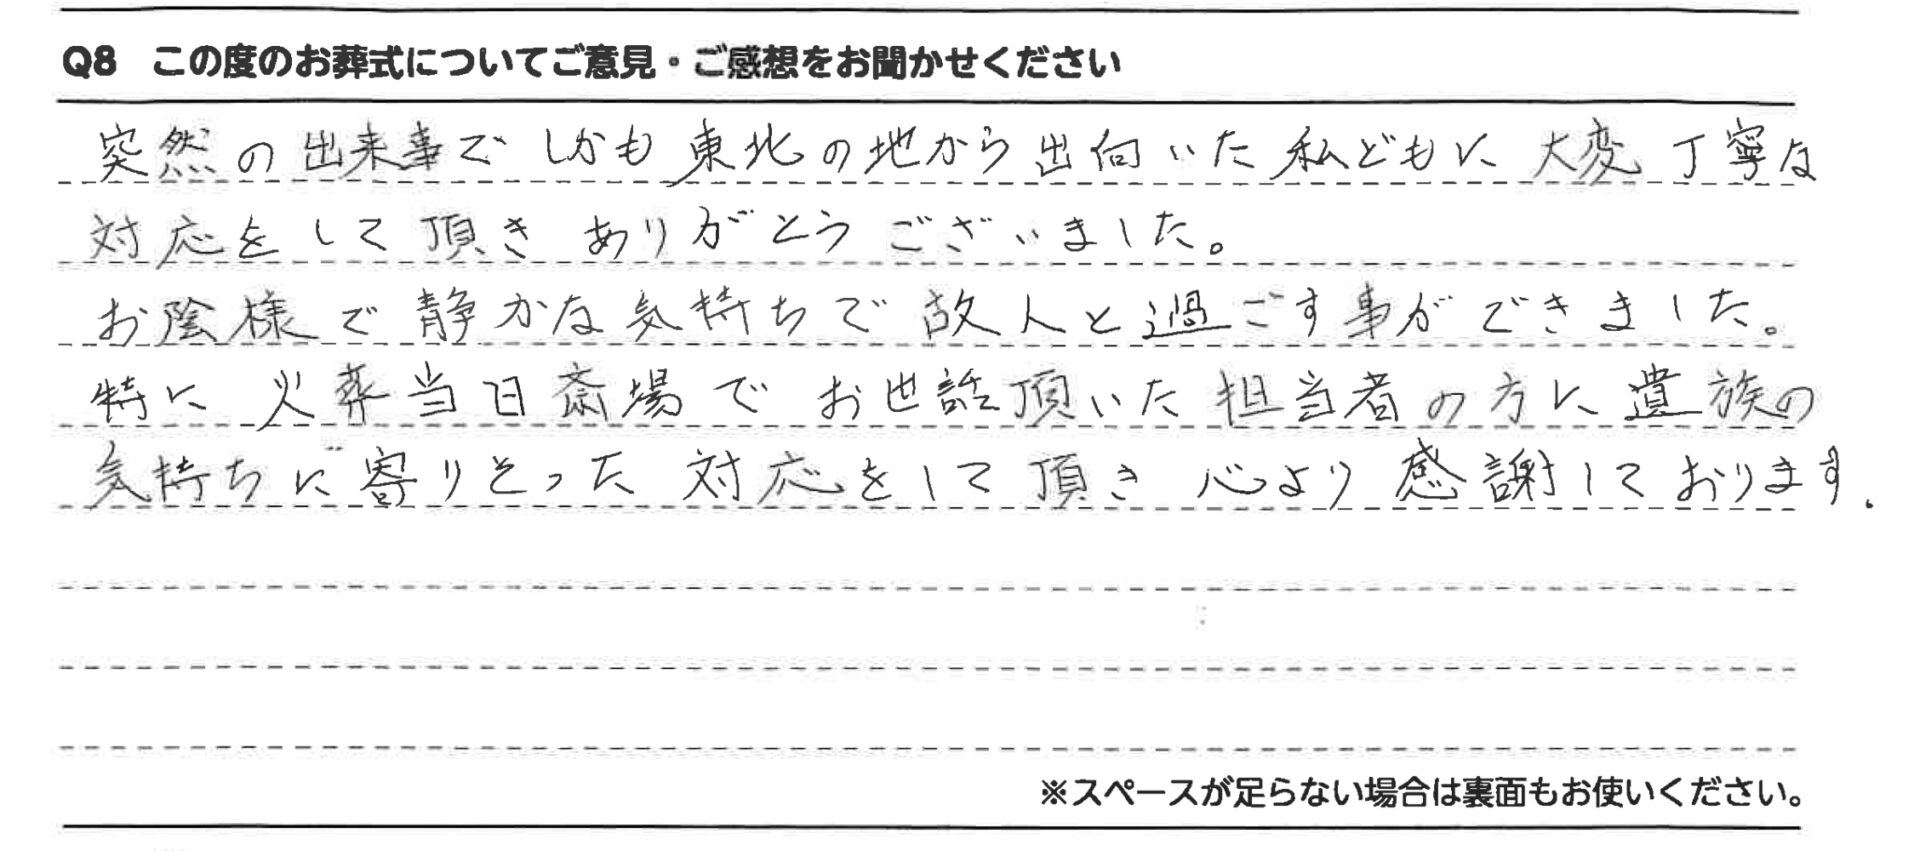 Q8 この度のお葬式についてご意見・ご感想をお聞かせください
突然の出来事で しかも東北の地から出向いた私どもに大変丁寧な
対応をして頂きありがとうございました。
お陰様で静かな気持ちで故人と過ごす事ができました。
特に火葬当日斎場でお世話頂いた担当者の方に遺族の
気持ちに寄りそった対応をして頂き心より感謝しております.
※スペースが足らない場合は裏面もお使いください。